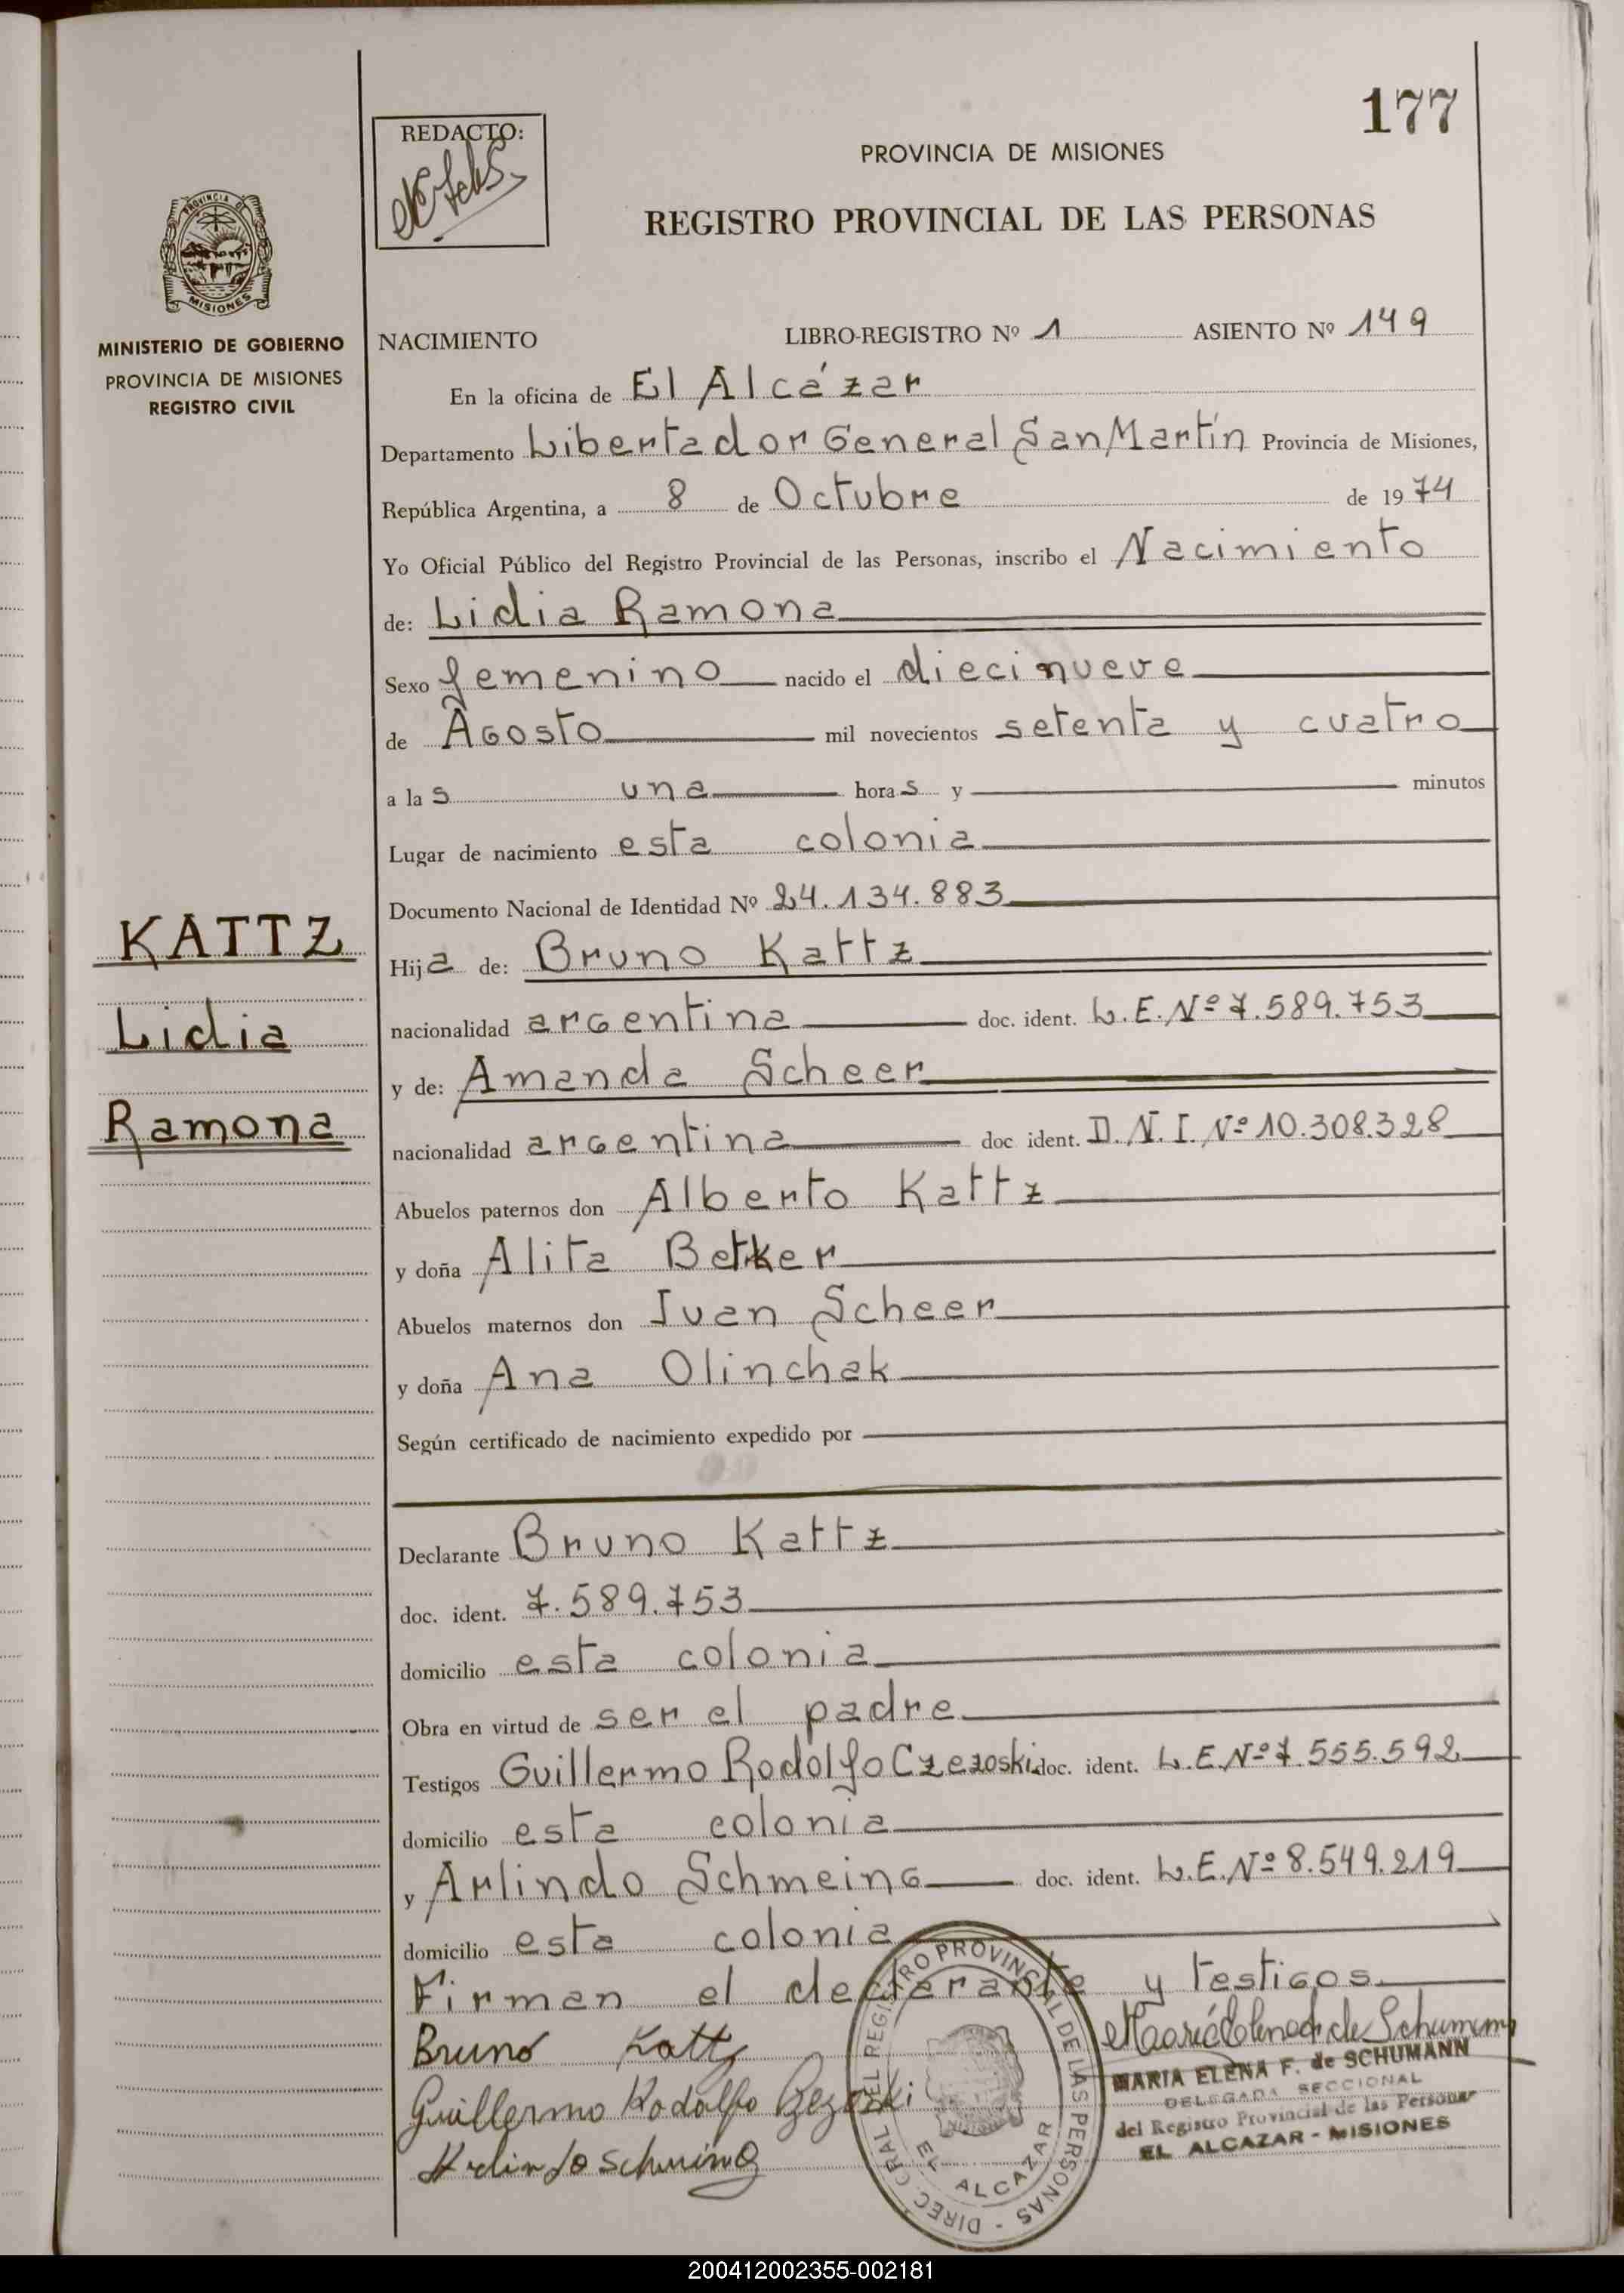 177
REDACTO:
PROVINCIA DE MISIONES
REGISTRO PROVINCIAL DE LAS PERSONAS
PROVINCIA DE
MISIONES
MINISTERIO DE GOBIERNO
PROVINCIA DE MISIONES
REGISTRO CIVIL
NACIMIENTO LIBRO-REGISTRO Nº 1 ASIENTO Nº 149
En la oficina de El Alcázar
Departamento Libertador General San Martín Provincia de Misiones,
República Argentina, a 8 de Octubre de 1974
Yo Oficial Público del Registro Provincial de las Personas, inscribo el Nacimiento
de: Lidia Ramona
Sexo femenino nacido el diecinueve
de Agosto mil novecientos setenta y cuatro
a las una horas y minutos
Lugar de nacimiento esta colonia
Documento Nacional de Identidad Nº 24.134.883
KATTZ
Lidia
Ramona
Hija de: Bruno Kattz
nacionalidad argentina doc. ident. L.E.Nº 7.589.753
y de: Amanda Scheer
nacionalidad argentina doc ident. D.N.I. Nº 10.308.328
Abuelos paternos don Alberto Kattz
y doña Alita Betker
Abuelos maternos don Ivan Scheer
y doña Ana Olinchak
Según certificado de nacimiento expedido por
Declarante Bruno Kattz
doc. ident. 7.589.753
domicilio esta colonia
Obra en virtud de ser el padre
Testigos Guillermo Rodolfo Czezoski doc. ident. L.E.Nº 7.555.592
domicilio esta colonia
y Arlindo Schmeing doc. ident. L.E.Nº 8.549.219
domicilio esta colonia
Firman el declarante y testigos.
Bruno Kattz
Guillermo Rodolfo Czezoski
Arlindo Schmeing
DIREC. GRAL. DEL REGISTRO PROVINCIAL DE LAS PERSONAS -
EL ALCAZAR
Maria Elena F. de Schumann
MARIA ELENA F. de SCHUMANN
DELEGADA SECCIONAL
del Registro Provincial de las Personas
EL ALCAZAR - MISIONES
200412002355-002181